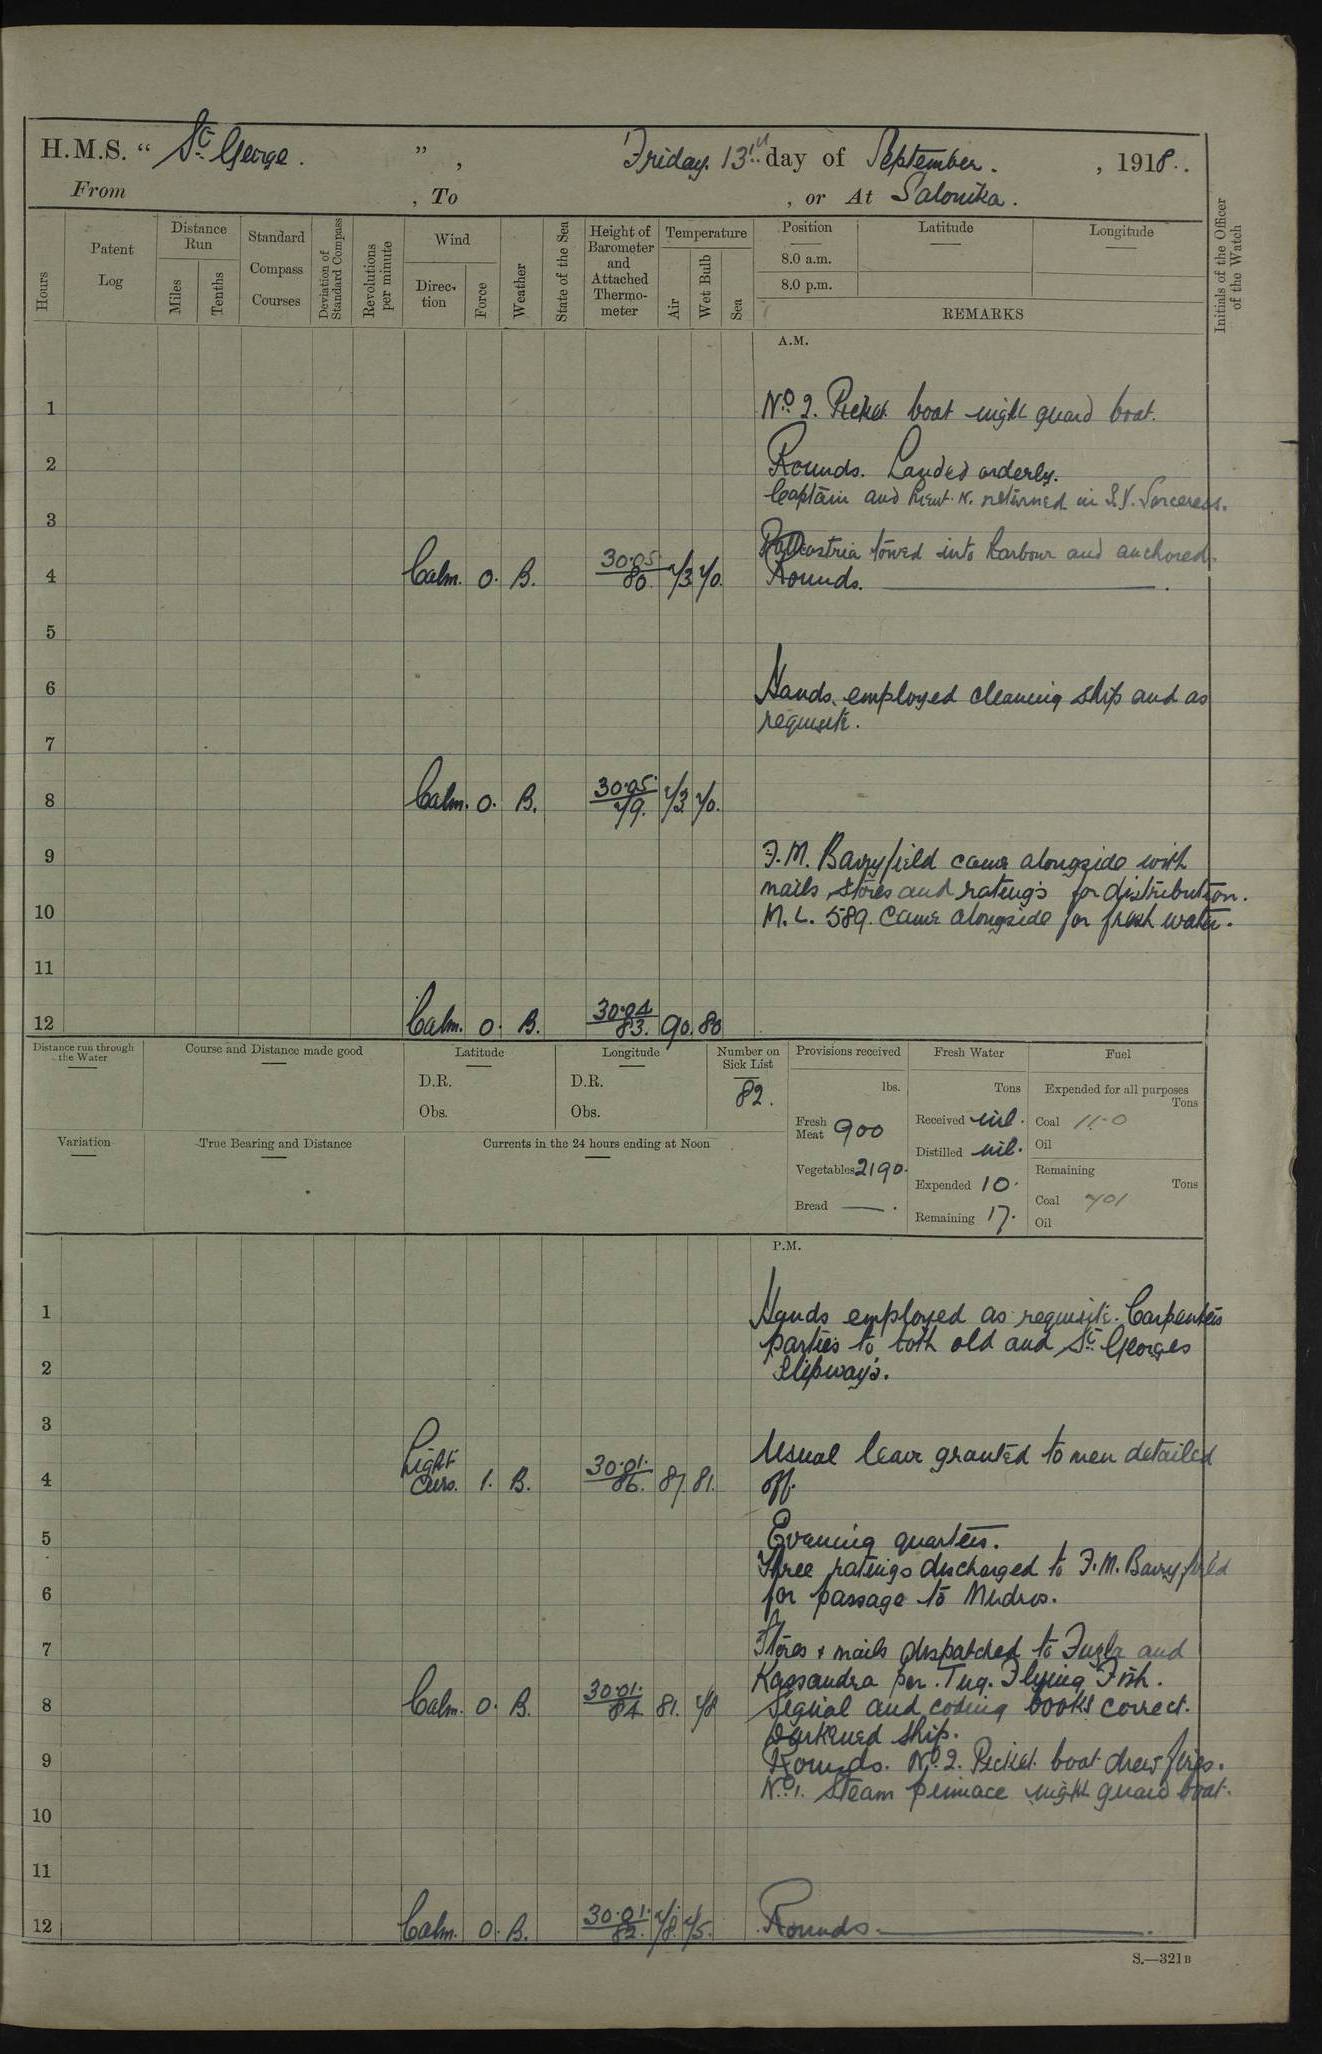 H.M.S. “ St George. ” , Friday. 13th day of September. , 1918.
From , To , or At Salonika.
Hours
Patent Log
Distance Run
Miles
Tenths
Standard Compass Courses
Deviation of Standard Compass
Revolutions per minute
Wind
Direction
Force
Weather
State of the Sea
Height of Barometer and Attached Thermometer
Temperature
Air
Wet Bulb
Sea
Position
Latitude
Longitude
8.0 a.m.
8.0 p.m.
REMARKS
Initials of the Officer of the Watch
A.M.
1
No. 2. Picket boat night guard boat.
2
Rounds. Landed orderly.
Captain and Lieut. N. returned in S.Y. Sorceress.
3
towed into harbour and anchored.
4 Calm. 0. B. 30.05/80. 73 70. Rounds.
5
6
Hands employed cleaning ship and as
requisite.
7
8 Calm. 0. B. 30.05/79. 73 70.
9
F.M. Barryfield came alongside with
mails, stores and ratings for distribution.
10
M.L. 589. came alongside for fresh water.
11
12 Calm. 0. B. 30.04/83. 90. 80
Distance run through the Water
Course and Distance made good
Latitude
D.R.
Obs.
Longitude
D.R.
Obs.
Number on Sick List
82.
Provisions received
lbs.
Fresh Meat 900
Vegetables 2190.
Bread —.
Fresh Water
Tons
Received nil.
Distilled nil.
Expended 10.
Remaining 17.
Fuel
Expended for all purposes
Tons
Coal 11.0
Oil
Remaining
Tons
Coal 701
Oil
Variation
True Bearing and Distance
Currents in the 24 hours ending at Noon
P.M.
1
Hands employed as requisite. Carpenters
parties to both old and St. Georges
2
Slipways.
3
Usual leave granted to men detailed
4 Light airs. 1. B. 30.01./86. 87 81. off.
5
Evening quarters.
Three ratings discharged to F.M. Barryfield
6
for passage to Mudros.
7
Stores & mails dispatched to Tuzla and
Kassandra per. Tug. Flying Fish.
8 Calm. 0. B. 30.01./84. 81. 78 Signal and coding books correct.
Darkened ship.
9
Rounds. No. 2. Picket boat drew fires.
No. 1. Steam pinnace night guard boat.
10
11
12 Calm. 0. B. 30.01./82. 78. 75. Rounds
S.—321B